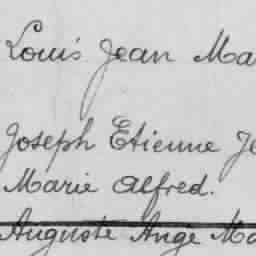 Louis Jean Ma
Joseph Etienne Je
Marie Alfred.
Auguste Ange Ma